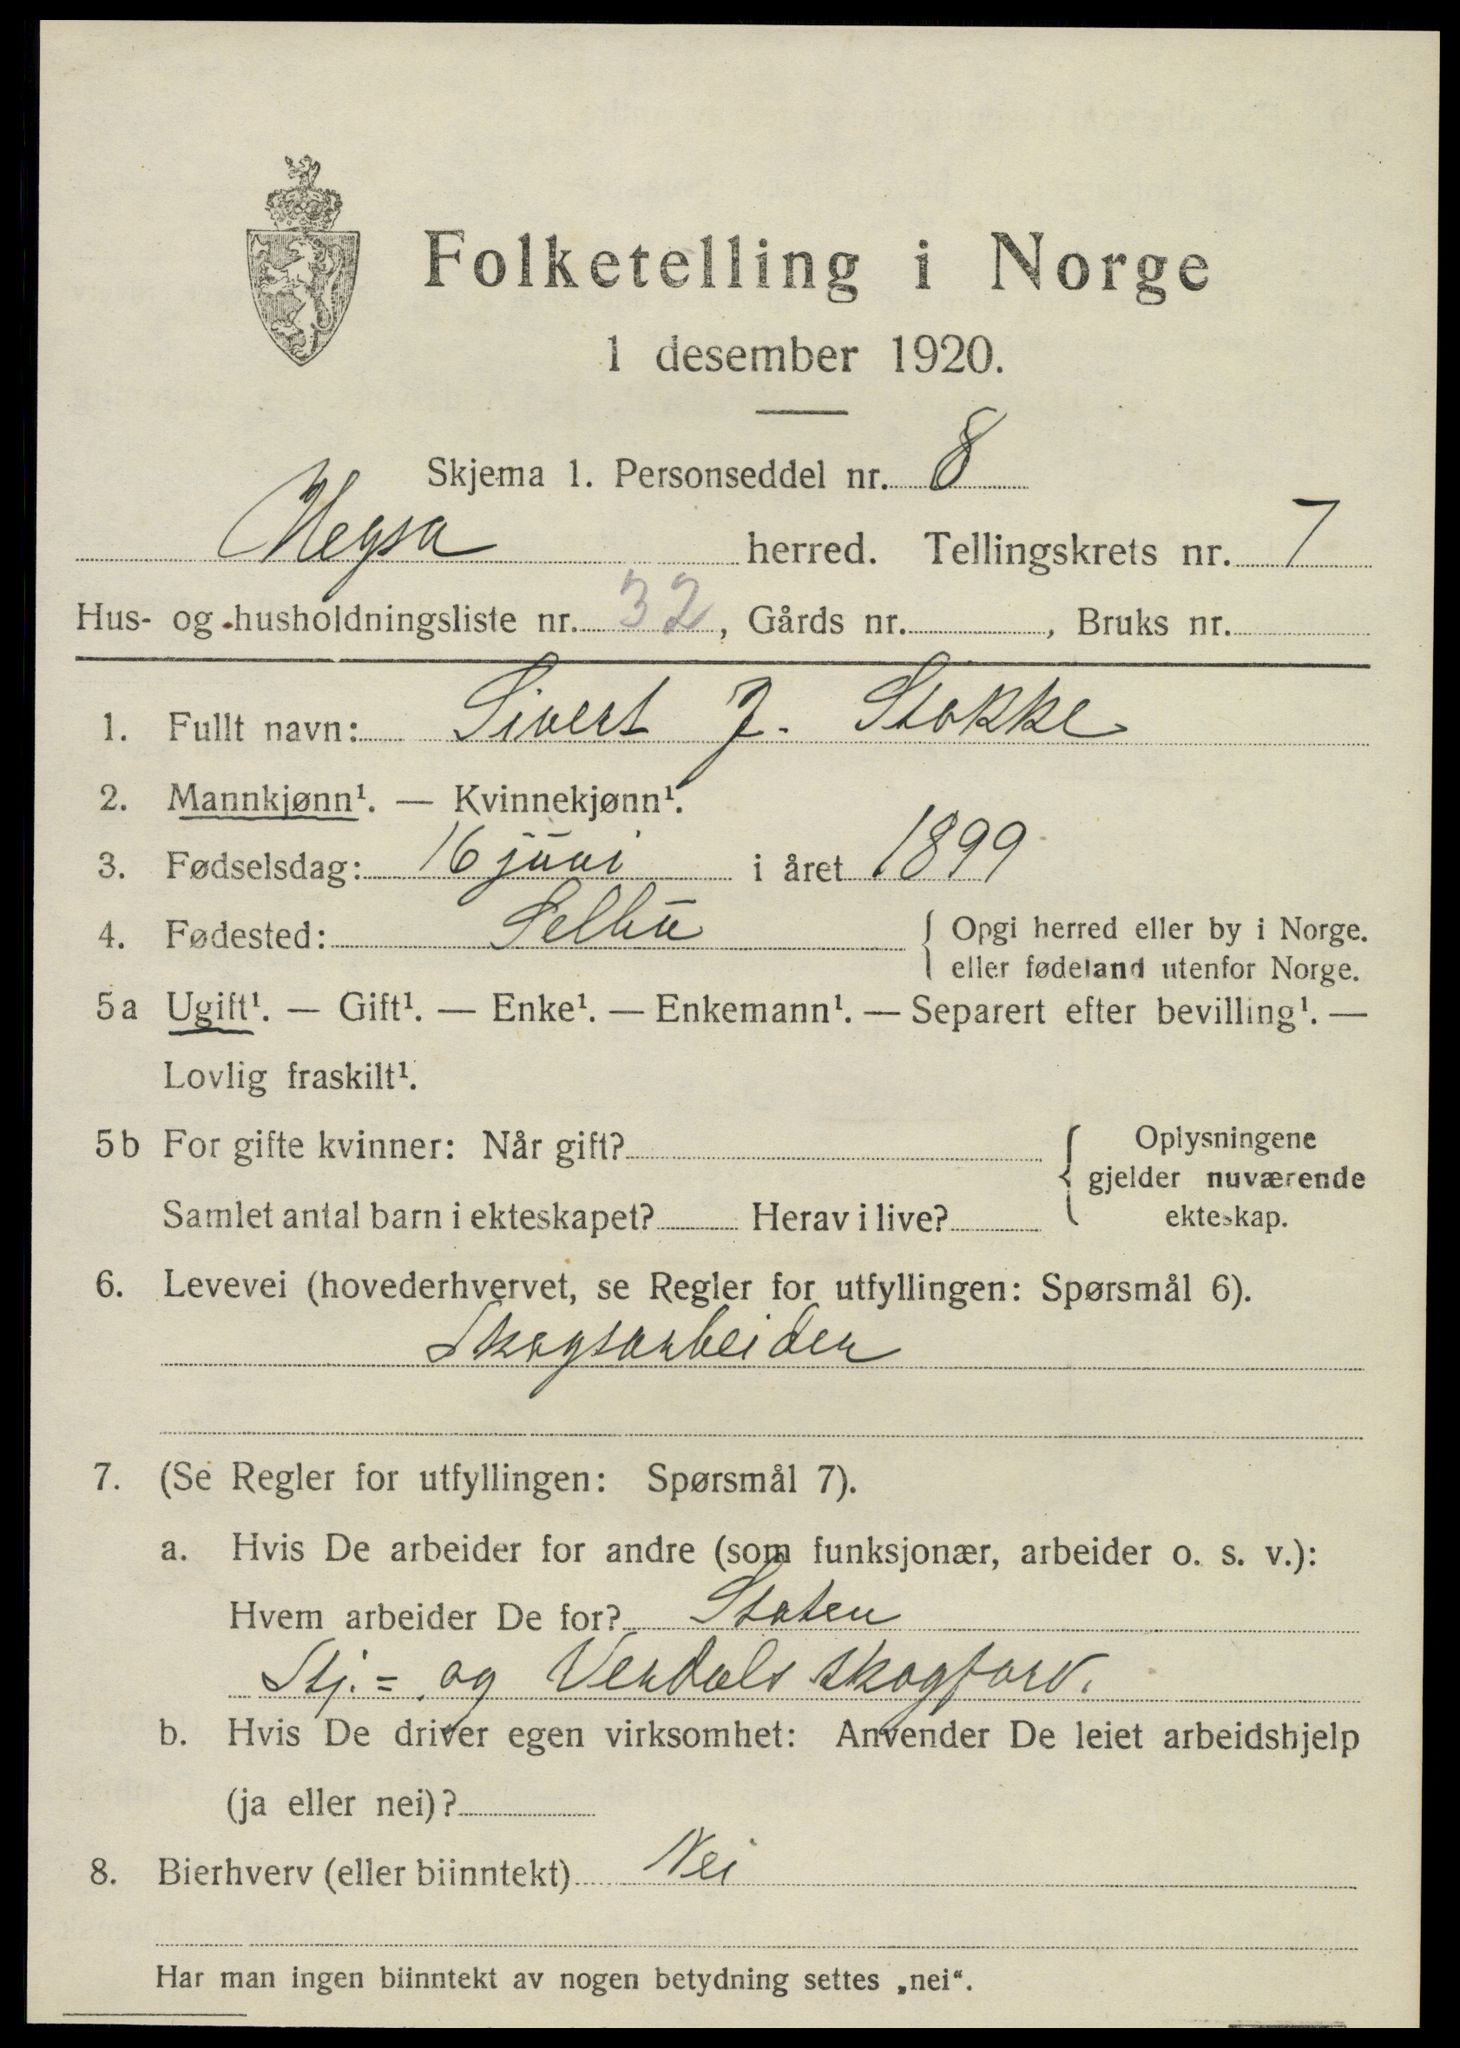 Folketelling i Norge
1 desember 1920.
Skjema 1. Personseddel nr. 8
Hegra herred. Tellingskrets nr. 7
Hus- og husholdningsliste nr. 32, Gårds nr. , Bruks nr.
1. Fullt navn: Sivert J. Stokke
2. Mannkjønn¹. — Kvinnekjønn¹.
3. Fødselsdag: 16 juni i året 1899
4. Fødested: Selbu { Opgi herred eller by i Norge.
eller fødeland utenfor Norge.
5a Ugift¹. — Gift¹. — Enke¹. — Enkemann¹. — Separert efter bevilling¹. —
Lovlig fraskilt¹.
5b For gifte kvinner: Når gift? { Oplysningene
gjelder nuværende
Samlet antal barn i ekteskapet? Herav i live? ekteskap.
6. Levevei (hovederhvervet, se Regler for utfyllingen: Spørsmål 6).
Skogsarbeider
7. (Se Regler for utfyllingen: Spørsmål 7).
a. Hvis De arbeider for andre (som funksjonær, arbeider o. s. v.):
Hvem arbeider De for? Staten
Stj.= og Verdals skogforv.
b. Hvis De driver egen virksomhet: Anvender De leiet arbeidshjelp
(ja eller nei)?
8. Bierhverv (eller biinntekt) Nei
Har man ingen biinntekt av nogen betydning settes „nei“.